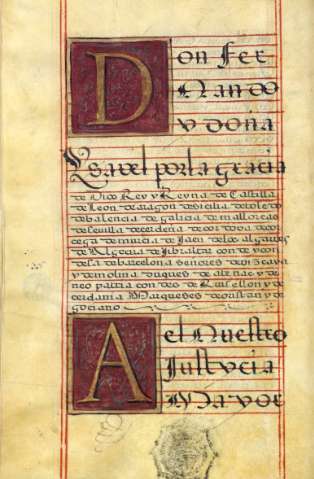 Don Fer
nando
y doña
Ysabel por la gracia
de Dios Rey y Reyna de Castilla
de Leon de aragon de sicilia de toledo
de balencia de galicia de mallorcas
de sevilla de cerdeña de cordova de cor
cega de murcia de Jaen delos algarves
de Algecira de Gibraltar con de y con
desa de barcelona señores de viz caya
y de molina duques de atenas y de
neo patria con des de Ruisellon y de
cerdania Marqueses de oristan y de
gociano
A el Nuestro
Justycia
Mayor